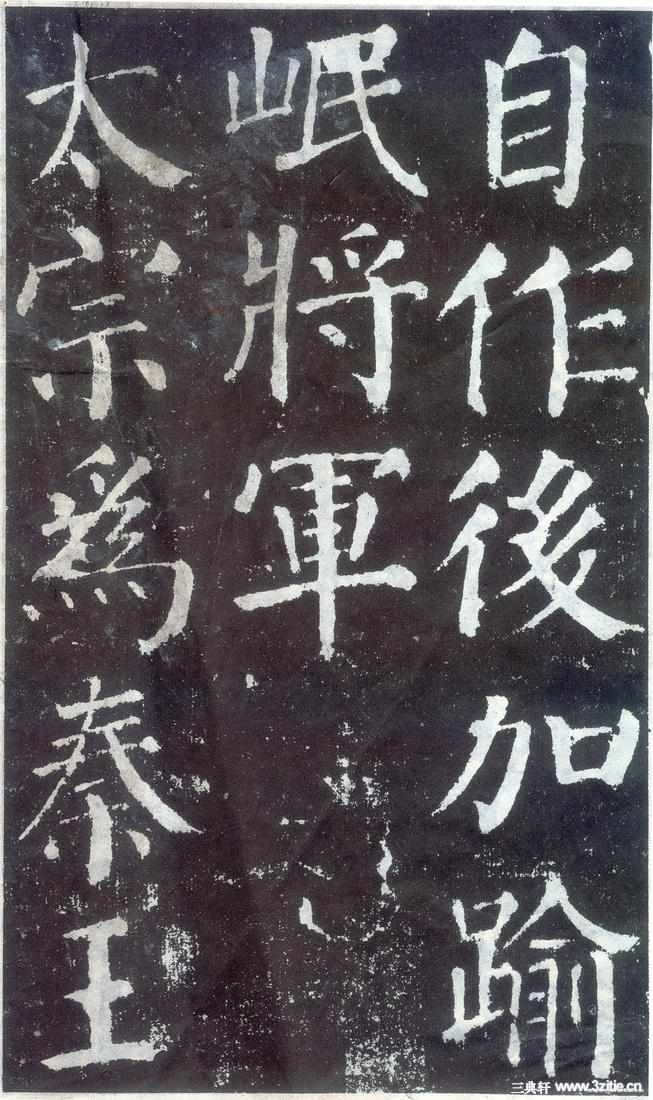 自作後加踰
岷將軍
太宗爲秦王
三典轩 www.3zitie.cn